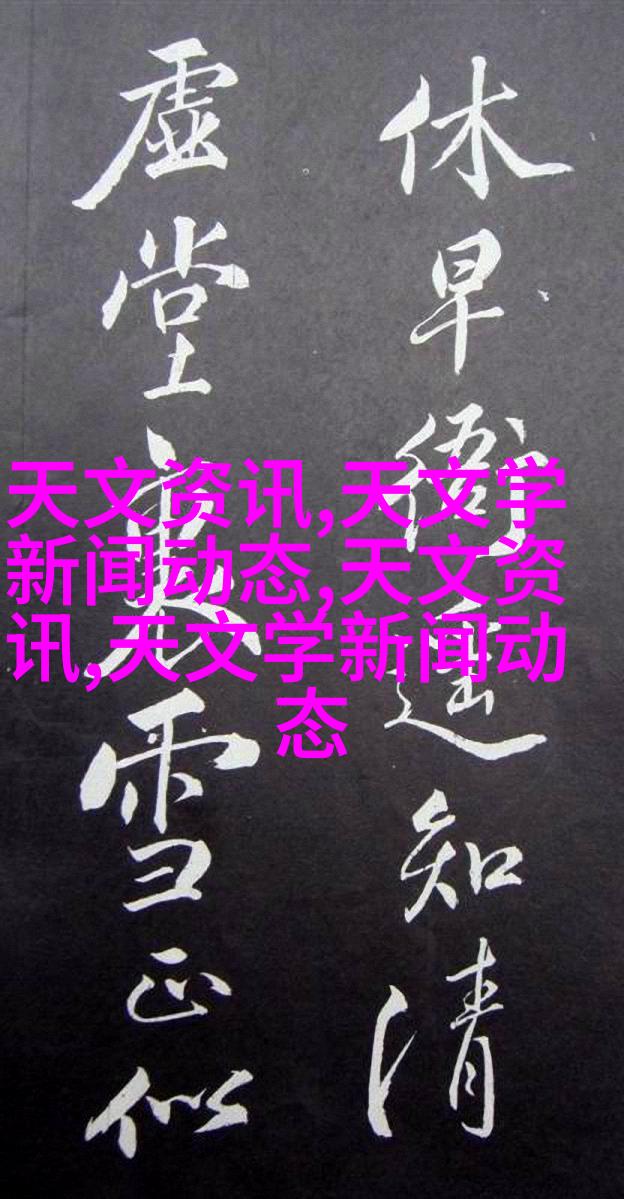 休早衙遙知清
虛堂雪正似
天文资讯,天文学
新闻动态,天文资
讯,天文学新闻动
态